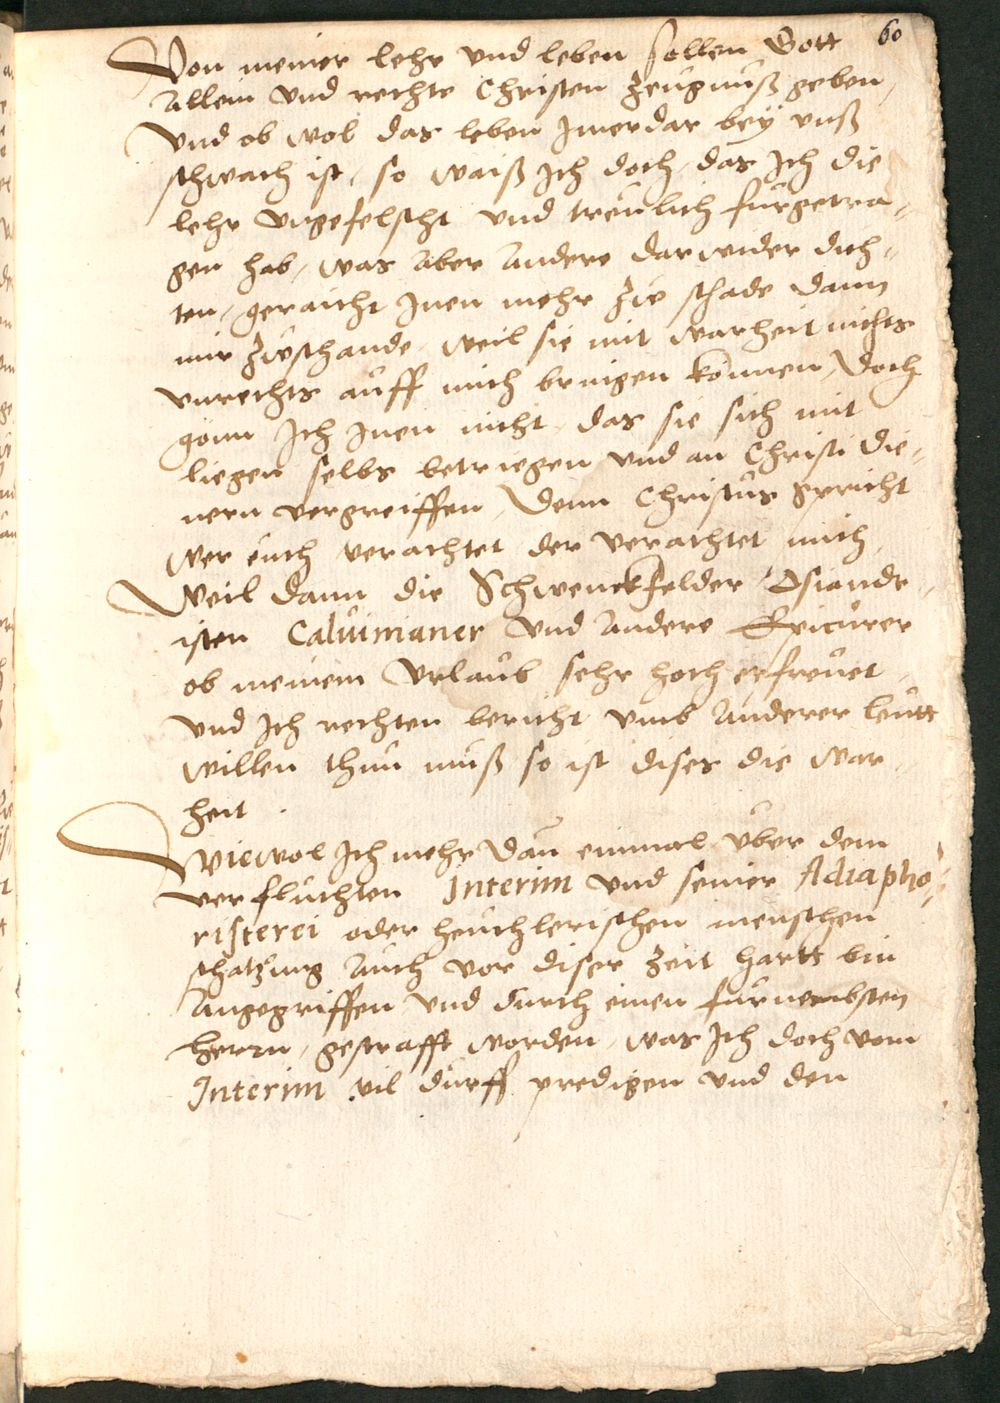 60
Von meiner lehr vnd leben sollen Gott
allein vnd rechte Christen zeugnuß geben,
Vnd ob wol das leben Imerdar bey vnß
schwach ist, so waiß Ich doch, das Ich die
lehr vngefelscht vnd treulich furgetra-
gen hab, was aber andere darwider dich-
ten, geraicht Inen mehr zue schade dann
mir zuschande, weil sie mit warheit nichts
vnrechts auff mich bringen können, Doch
gönn Ich Inen nicht, das sie sich mit
liegen selbs betriegen vnd an Christi die-
nern vergreiffen, Denn Christus spricht
wer euch verachtet der verachtet mich,
Weil dann die Schwenckfelder Osiande-
isten Caluinianer vnd andere Epicurer
ob meinem Vrlaub sehr hoch erfreuet,
vnd Ich rechten bericht vmb anderer leutt
willen thun muß so ist dises die war-
heit.
Wiewol Ich mehr dan einmal vber dem
verfluchten Interim vnd seiner Adiapho-
risterei oder heuchlerischen menschen
schatzung auch vor diser zeit hartt bin
angegriffen vnd durch einen furnembsten
herrn, gestrafft worden, was Ich doch vom
Interim vil durff predigen vnd den